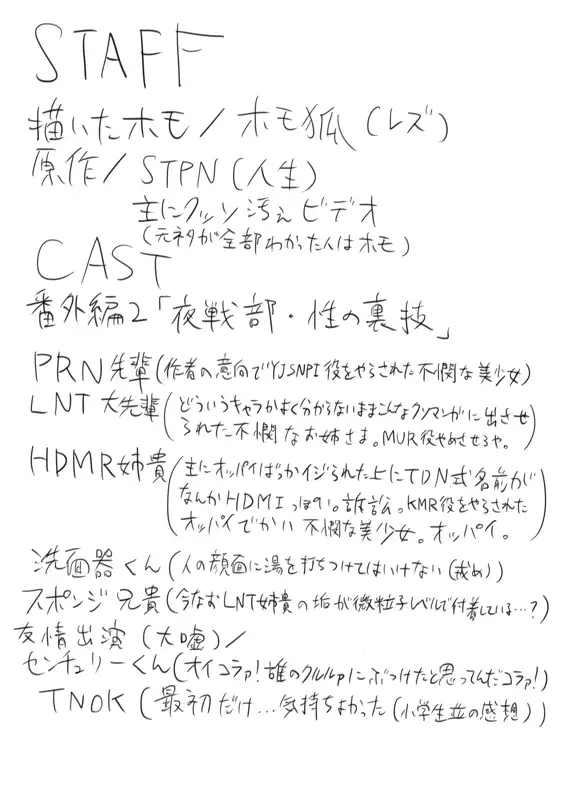 STAFF
描いたホモ/ホモ狐(レズ)
原作/STPN(人生)
主にクッソ汚ぇビデオ
(元ネタが全部わかった人はホモ)
CAST
番外編2「夜戦部・性の裏技」
PRN先輩(作者の意向でYJSNPI役をやらされた不憫な美少女)
LNT大先輩(どういうキャラかよく分からないままこんなクソマンガに出させ
られた不憫なお姉さま。MUR役やめさせろや。)
HDMR姉貴(主にオッパイばっかイジられた上にTDN式名前が
なんかHDMIっぽい。訴訟。KMR役をやらされた
オッパイでかい不憫な美少女。オッパイ。)
洗面器くん(人の顔面に湯を打ちつけてはいけない(戒め))
スポンジ兄貴(今なおLNT姉貴の垢が微粒子レベルで付着している…?)
友情出演(大嘘)/
センチュリーくん(オイコラァ!誰のクルルァにぶつけたと思ってんだコラァ!)
TNOK(最初だけ…気持ちよかった(小学生並の感想))